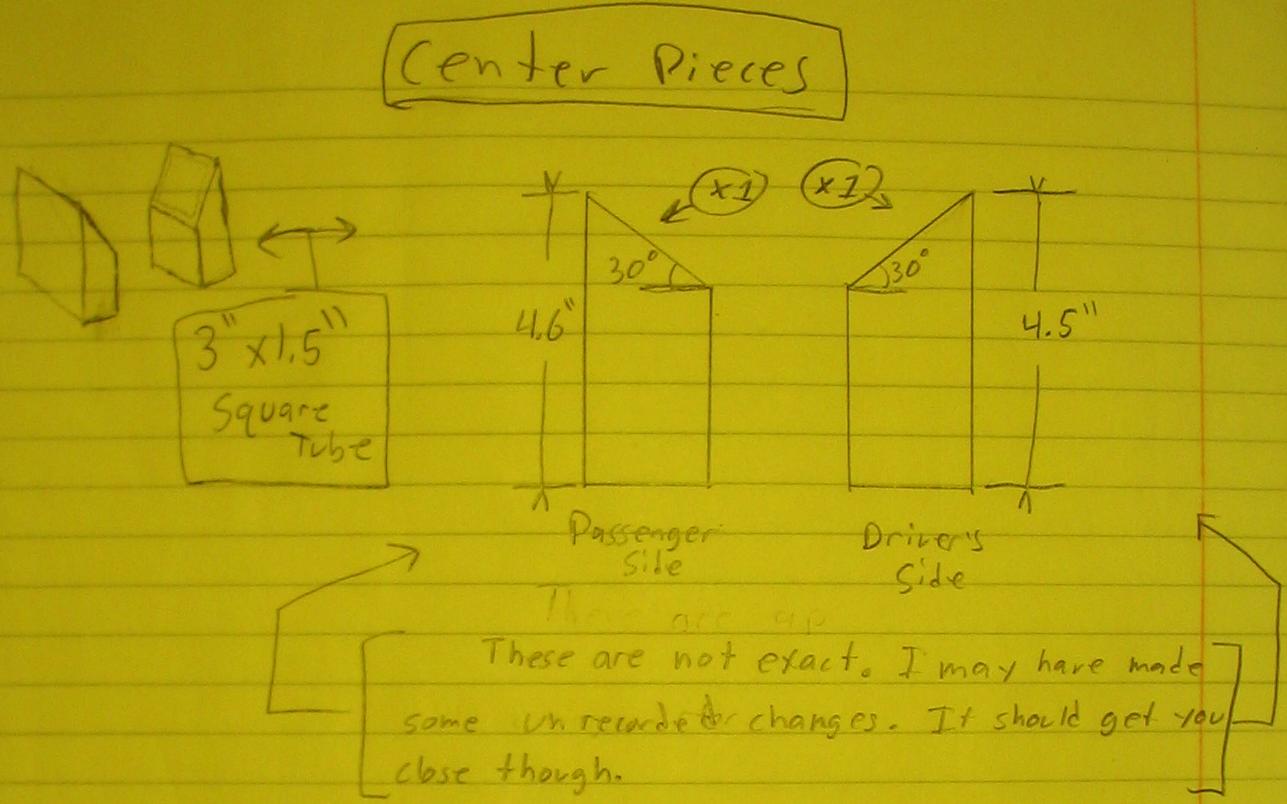 Center Pieces
x1 x1
30° 30°
4.6" 4.5"
3" x1.5"
Square
Tube
Passenger Driver's
Side Side
These are ap
These are not exact. I may have made
some unrecorded changes. It should get you
close though.